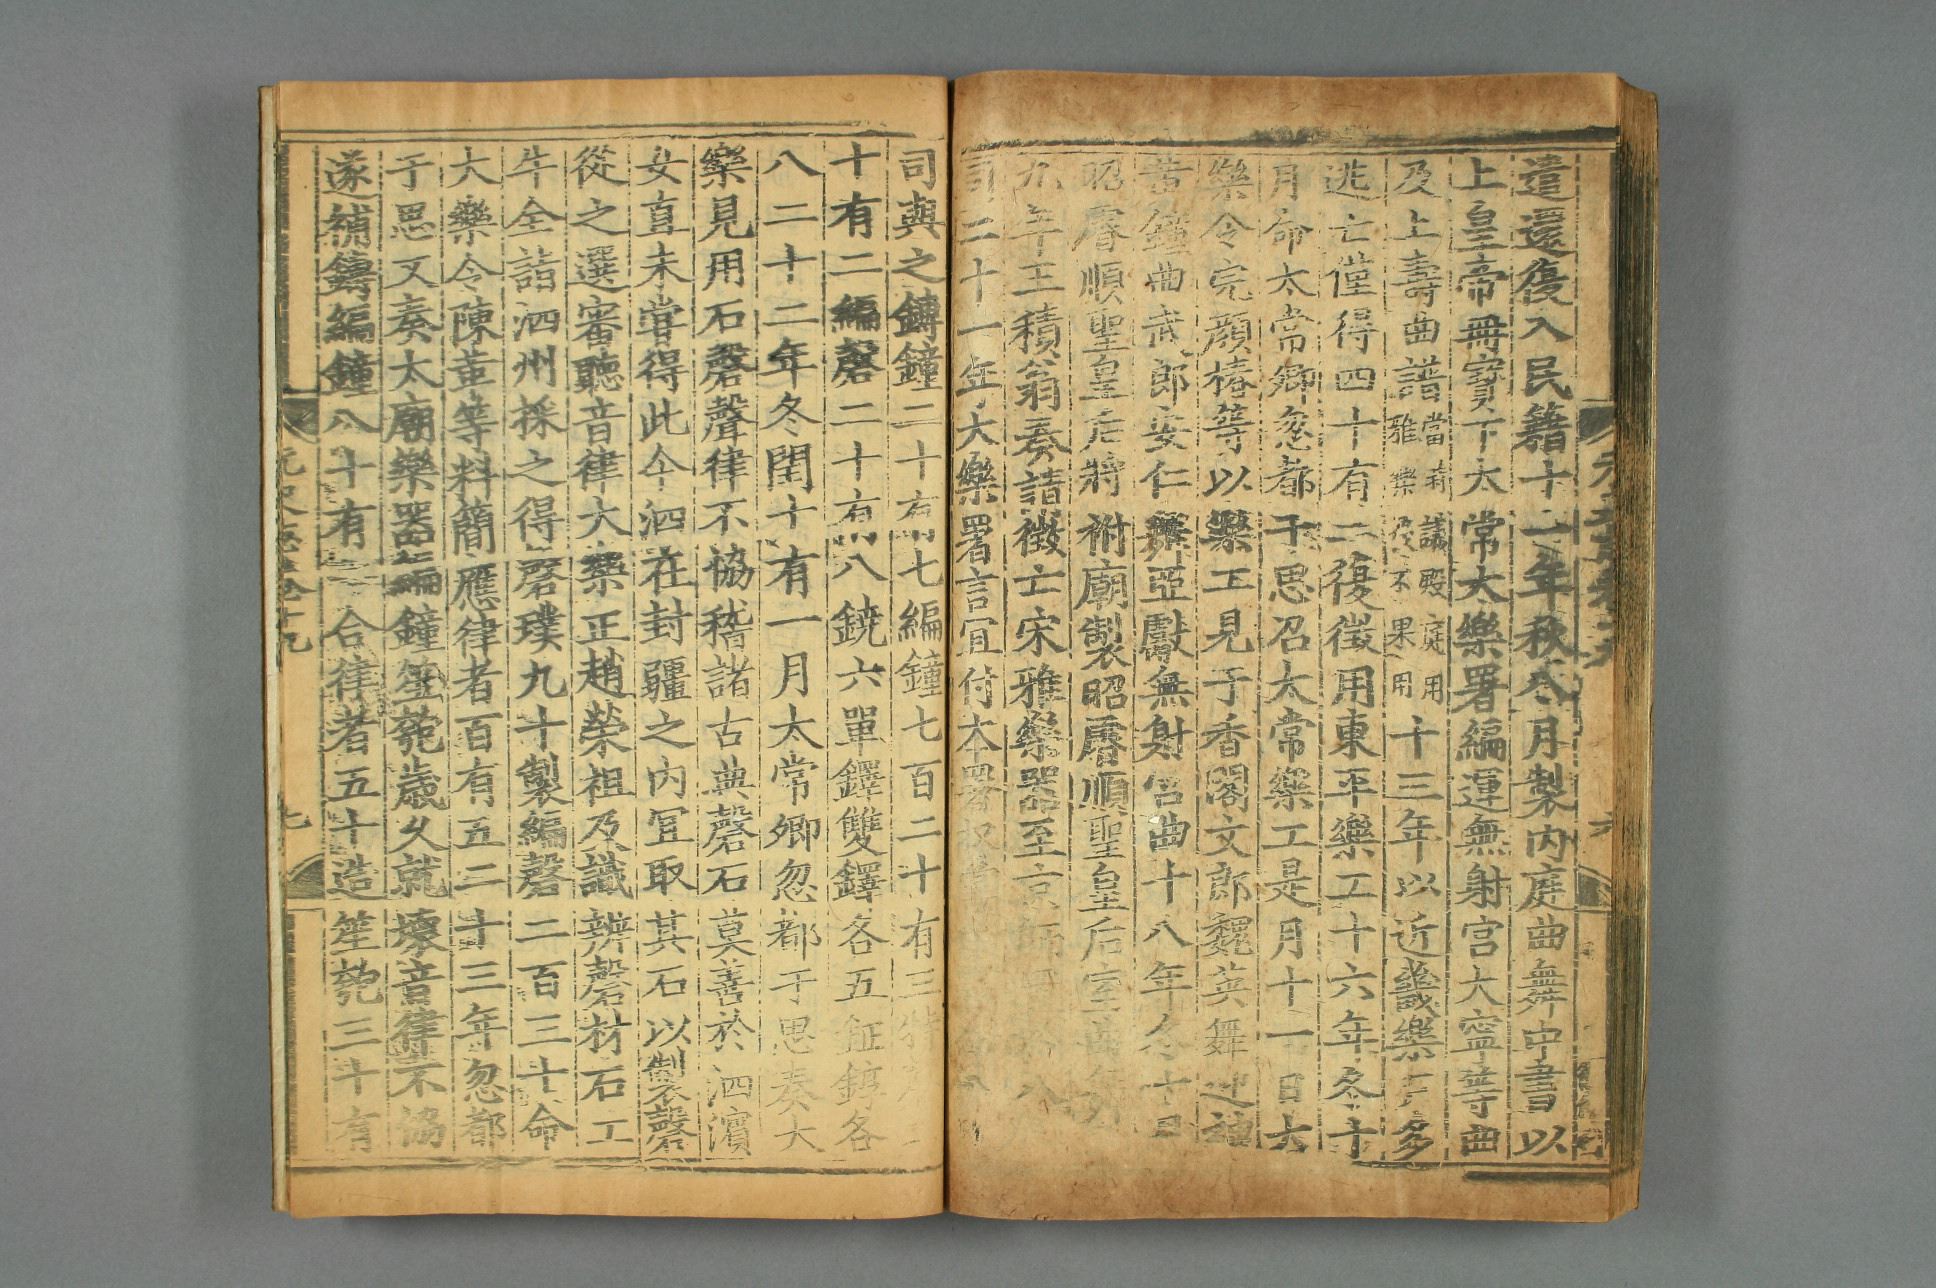 遣還復入民籍十一年秋八月製內庭曲舞中書以
上皇帝冊寶下太常大樂署編運無射宮大寧等曲
及上壽曲譜當時議殿庭用雅樂後不果用十三年以近畿樂戶多
逃亡僅得四十有二復徵用東平樂工十六年冬十
月命太常卿忽都于思召太常樂工是月十一日大
樂令完顏椿等以樂工見于香閣文郎魏英舞迎神
黃鐘曲武郎安仁舞亞獻無射宮曲十八年冬十月
昭睿順聖皇后將祔廟製昭睿順聖皇后室曲
九年王積翁奏請徵亡宋雅樂器至京師
司二十一年大樂署言宜付本署
司與之鎛鐘二十有七編鐘七百二十有三特
十有二編磬二十有八鐃六單鐸雙鐸各五鉦錞各
八二十二年冬閏十有一月太常卿忽都于思奏大
樂見用石磬聲律不協稽諸古典磬石莫善於泗濱
女直未嘗得此今泗在封疆之內宜取其石以製磬
從之選審聽音律大樂正趙榮祖及識辨磬材石工
牛全詣泗州採之得磬璞九十製編磬二百三十命
大樂令陳革等料簡應律者百有五二十三年忽都
于思又奏太廟樂器編鐘笙匏歲久就壞音律不協
遂補鑄編鐘八十有一合律者五十造笙匏三十有
元史志卷十九
七